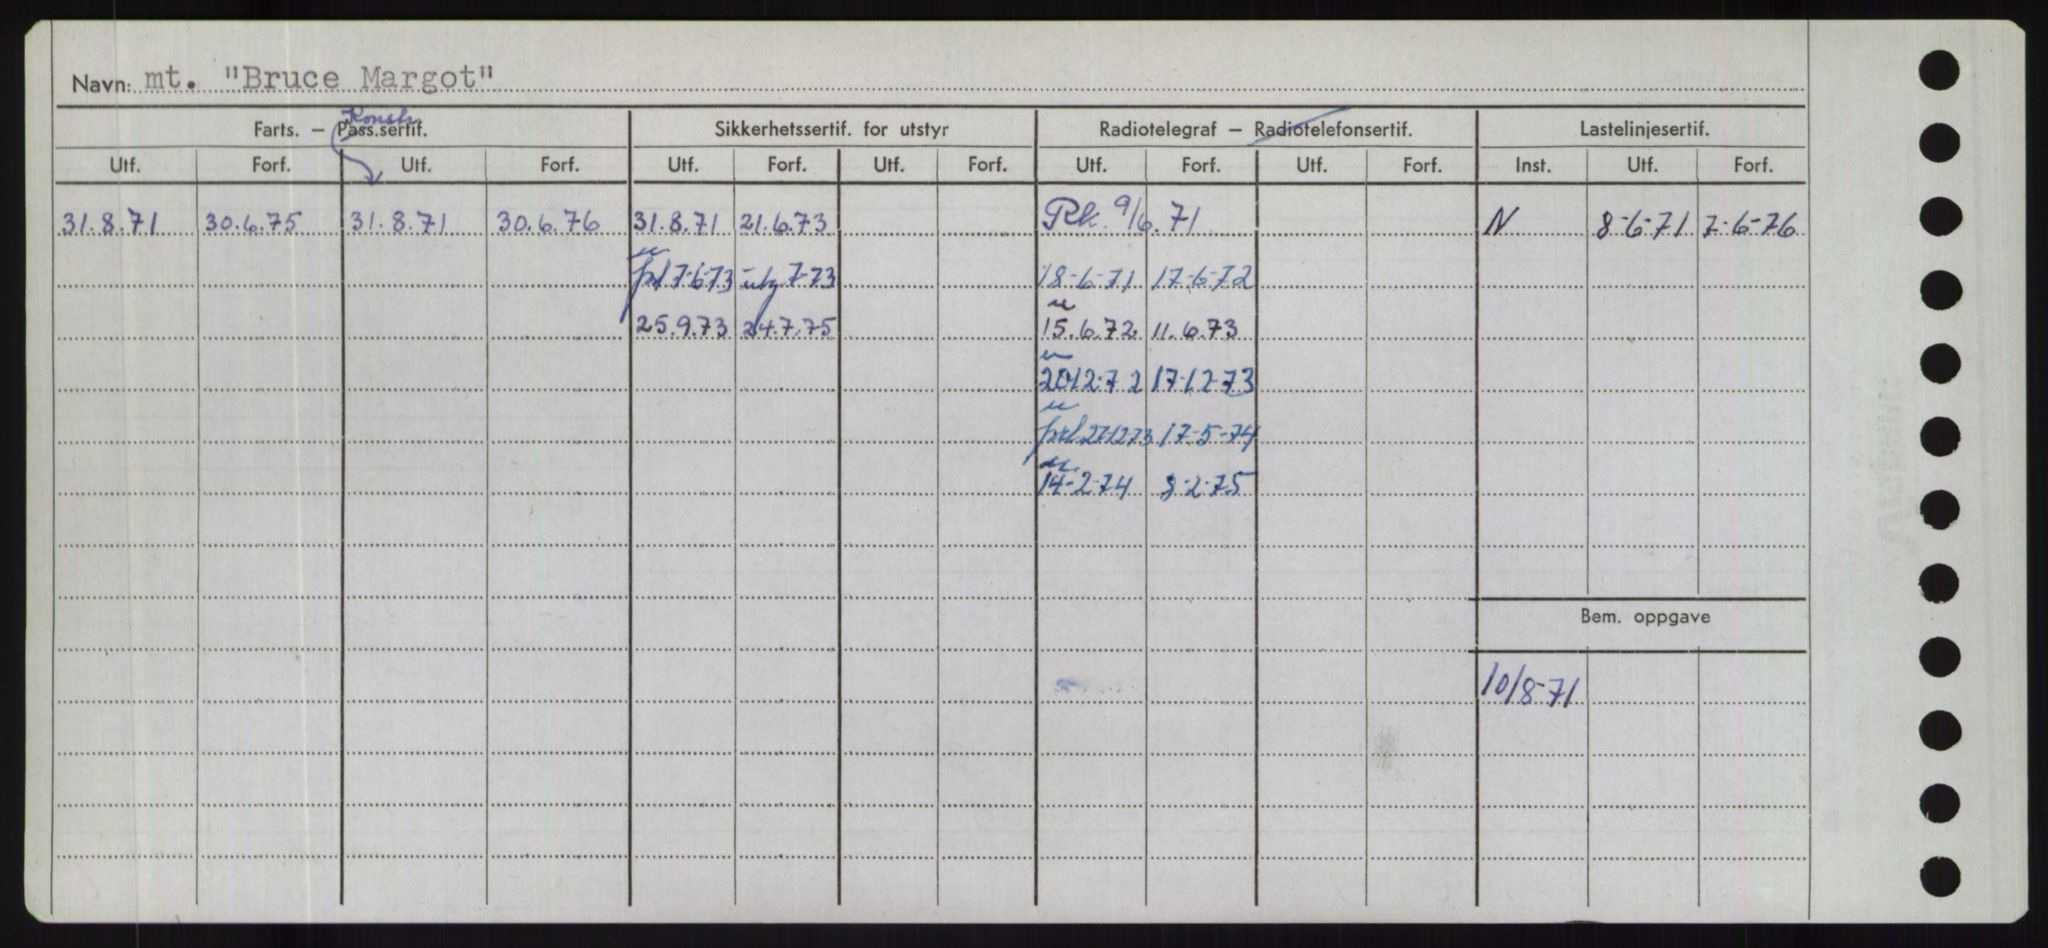 Navn: mt. "Bruce Margot"
Konstr.
Farts. — Pass.sertif. Sikkerhetssertif. for utstyr Radiotelegraf — Radiotelefonsertif. Lastelinjesertif.
Utf. Forf. Utf. Forf. Utf. Forf. Utf. Forf. Utf. Forf. Utf. Forf. Inst. Utf. Forf.
31.8.71 30.6.75 31.8.71 30.6.76 31.8.71 21.6.73 Rk. 9/6.71 N 8-6-71 7-6-76
prl 7-6-73 utg 7-73 18-6-71 17-6-72
25.9.73 24.7.75 15.6.72 11.6.73
20-12-72 17-12-73
prl 27-12-73 17-5-74
14-2-74 8-2-75
Bem. oppgave
10/8-71